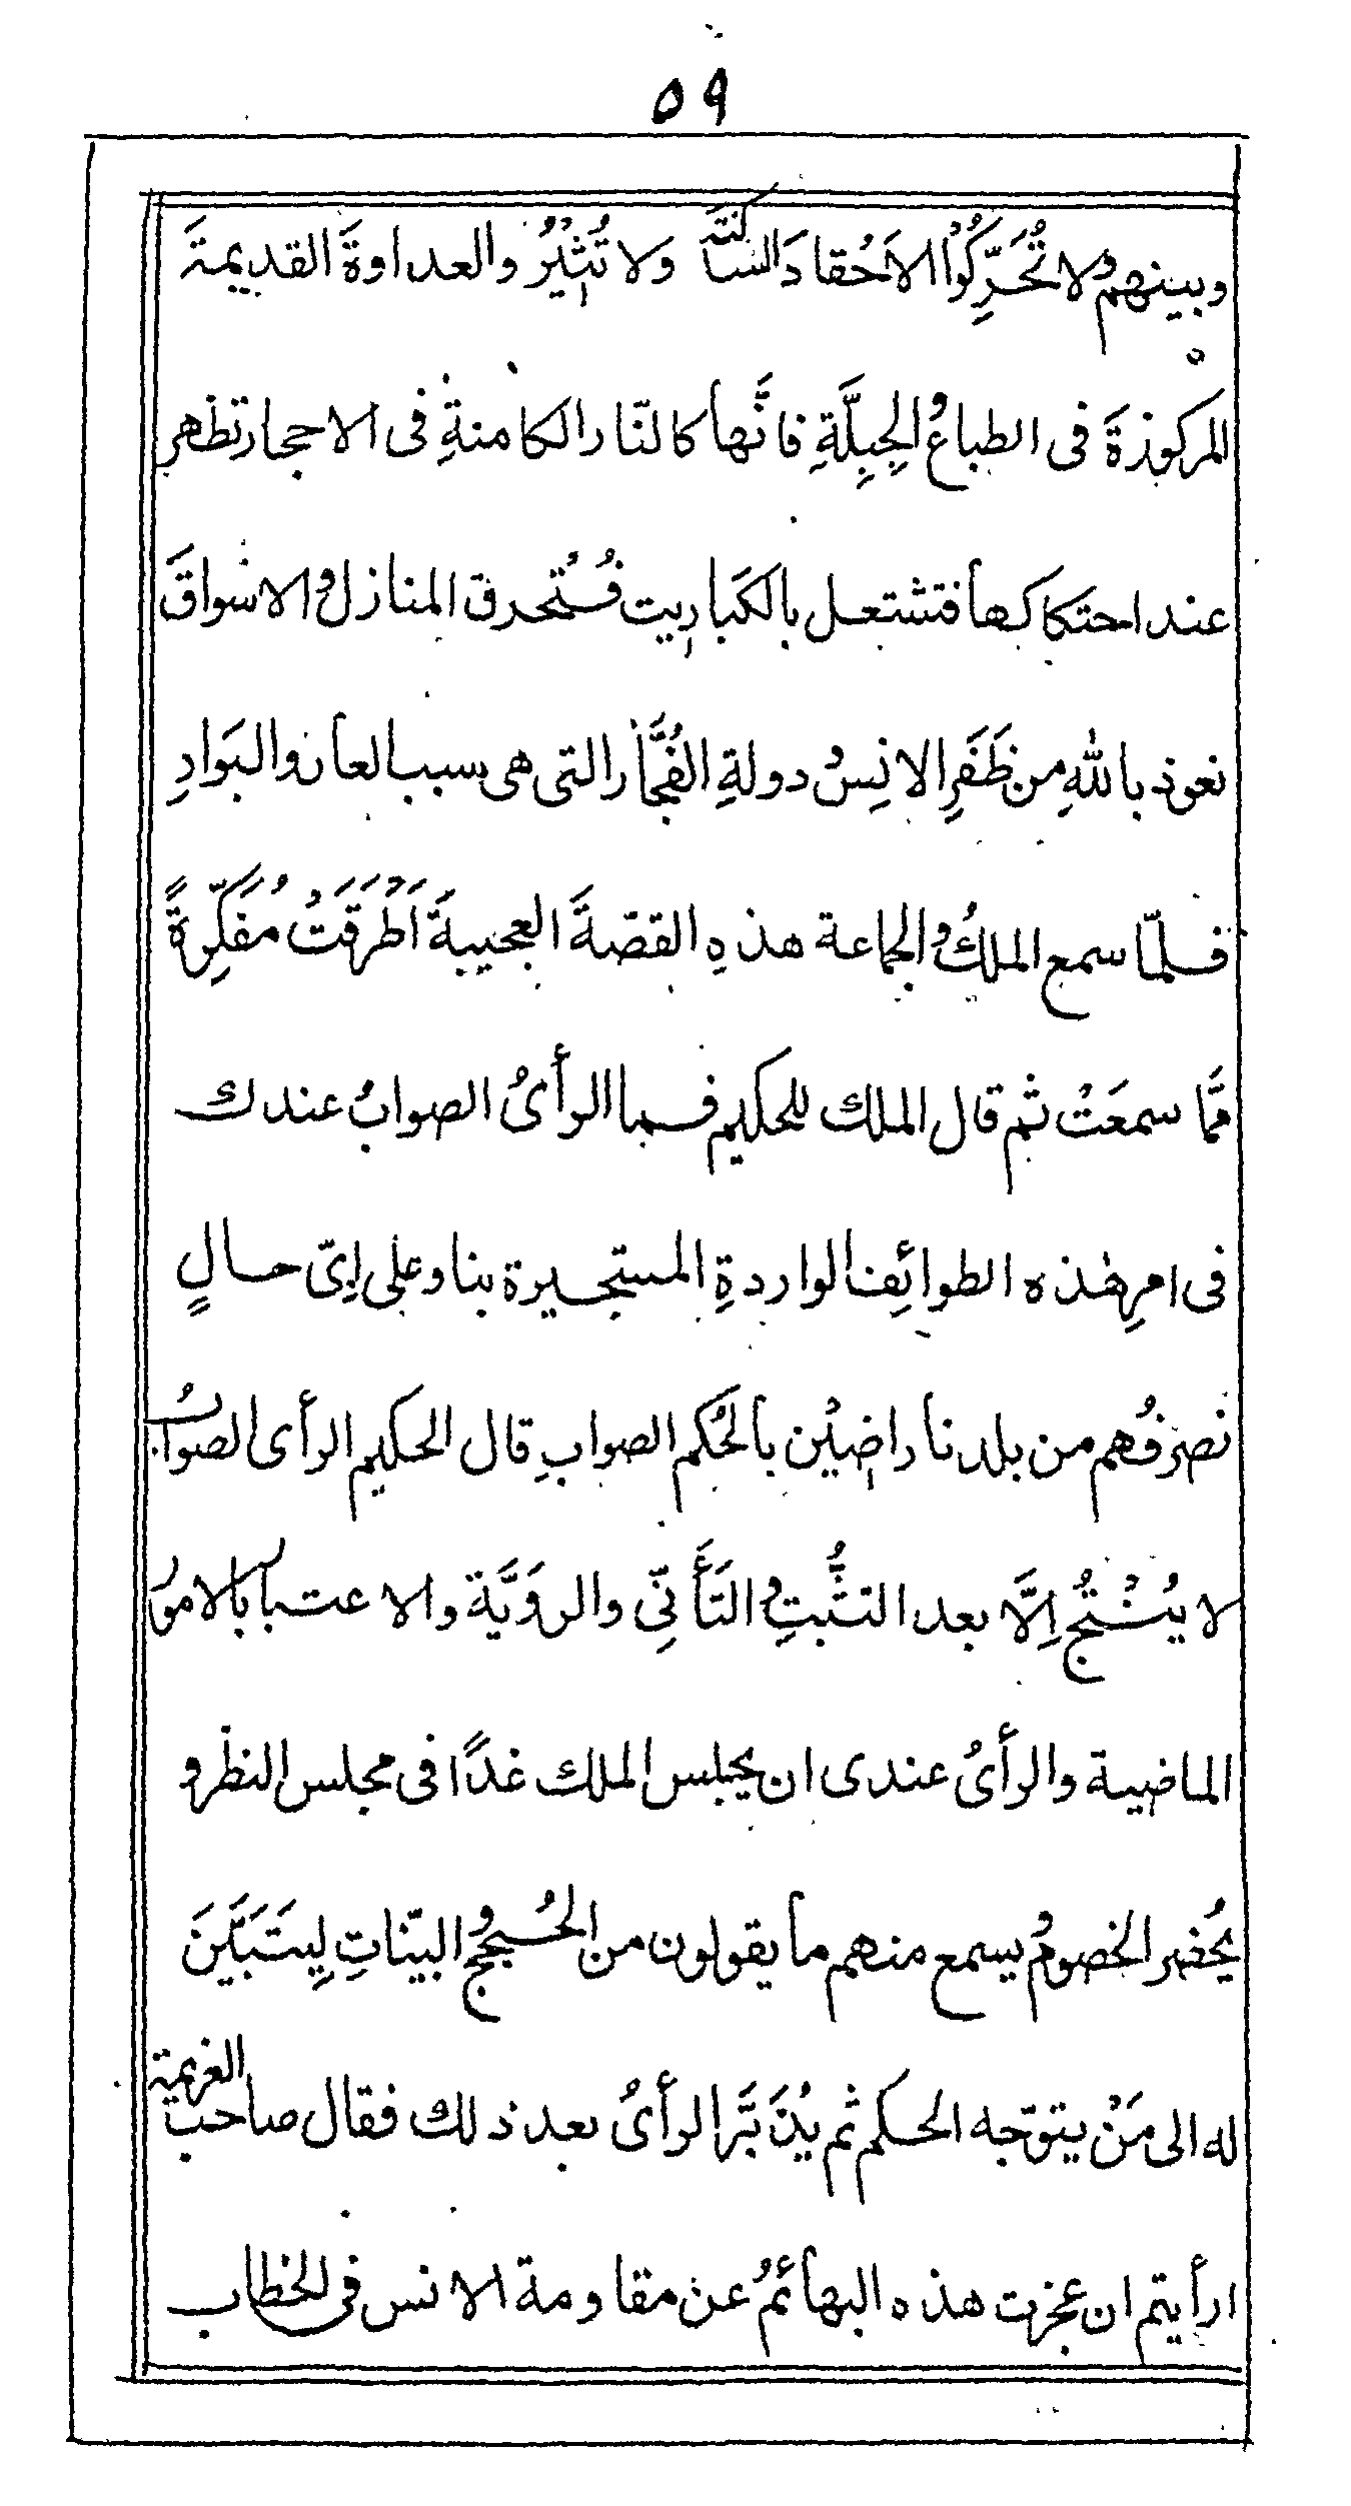 ٥٩
وبينهم ولا تُحَرِّكُوْا الاَحْقادَ الساكنةَ ولا تُثِيْرُوا العداوةَ القديمةَ
المركوزةَ فى الطباع والجِبِلَّةِ فانَّها كالنّار الكامنةِ فى الاحجار تظهر
عند احتكاكها فتشتعل بالكَبارِيت فتُحرق المنازل والاسواقَ
نعوذ باللهِ من ظَفَرِ الانِس ودولةِ الفُجَّار التى هى سبب العار والبَوارِ
فلمّا سمع الملك والجماعة هذهِ القصّةَ العجيبةَ اَطْرَقَتْ مُفَكِّرةً
ممَّا سمعَتْ ثم قال الملك للحكيم فما الرأىُ الصوابُ عندك
فى امرِ هٰذه الطوائِف الواردةِ المستجيرة بنا وعلى اىّ حالٍ
نصرفُهم من بلدنا راضيْن بالحُكم الصوابِ قال الحكيم الرأى الصوابُ
لا يُنْتجُ اِلَّا بعد التثُّبتِ والتَأَنّىِ والروَيَّة والاعتبار بالامور
الماضية والرأىُ عندى ان يجلس الملك غدًا فى مجلس النظر و
يُحضر الخصوم ويسمع منهم ما يقولون من الحُجج والبيّناتِ لِيتَبَيَّنَ
له الى مَنْ يتوّجه الحكم ثم يُدَبَّر الرأىُ بعد ذلك فقال صاحب العزيمة
ارأيتم ان عجزت هذه البهائمُ عن مقاومة الانس فى الخطاب